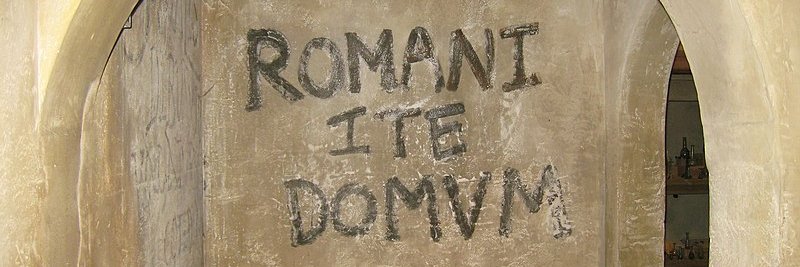 ROMANI
ITE
DOMVM